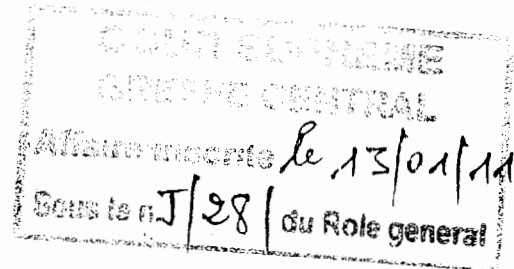 COUR SUPREME
GREFFE CENTRAL
Affaire inscrite le 13/01/11
Sous le n J/28/ du Role general